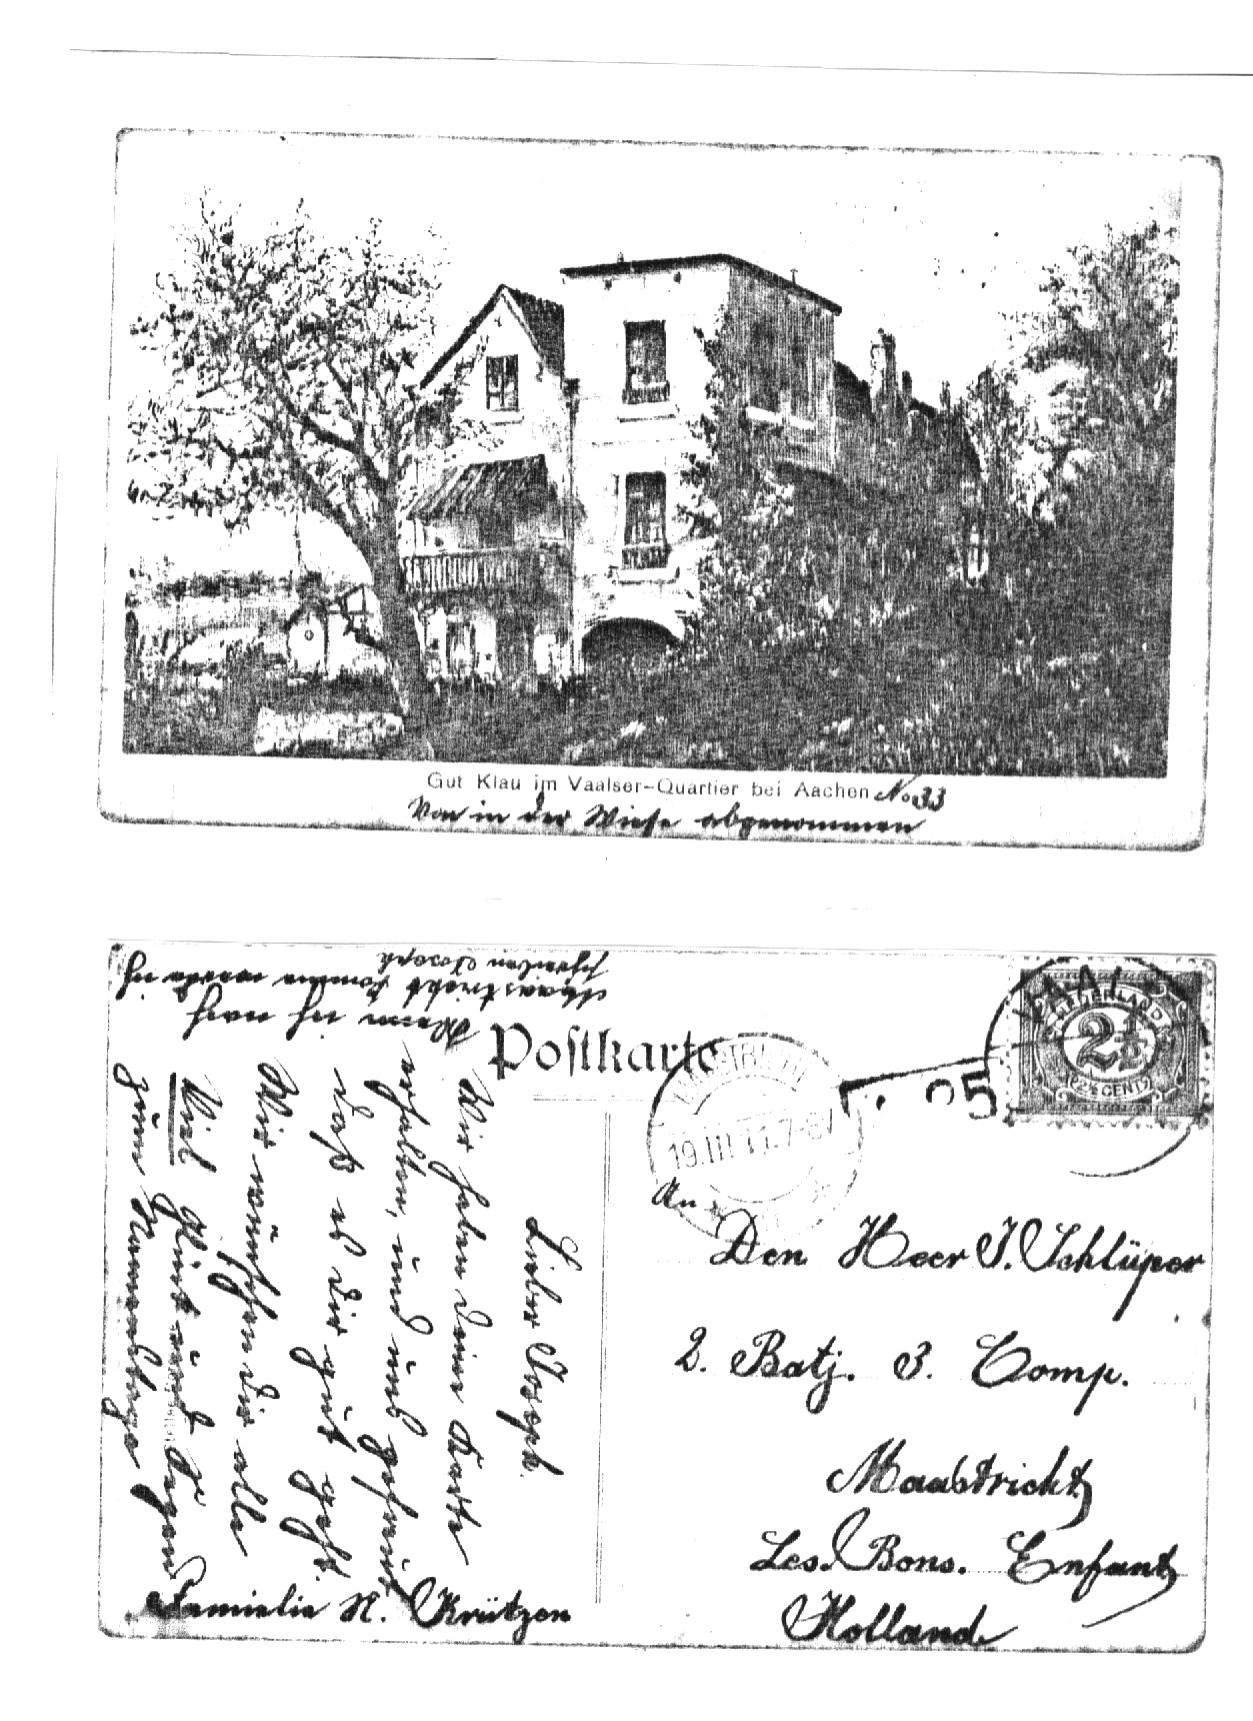 Gut Klau im Vaalser-Quartier bei Aachen No 33
Von in der Wiese abgenommen
Postkarte
NEDERLAND
2½
2½ CENT
VAALS
95
MAASTRICHT
19.III 11.7-8V
An
Den Heer J. Schlüper
2. Batj. 3. Comp.
Maastricht
Les. Bons. Enfant
Holland
Lieber Joseph.
Wir haben deine Karte
erhalten, und uns gefreut
daß es dir gut geht.
Wir wünschen dir alle
Viel Glück und Segen
zum Namenstage
Familie N. Krützen
Wenn ich nach
Maastricht komme werde ich
schreiben Joseph